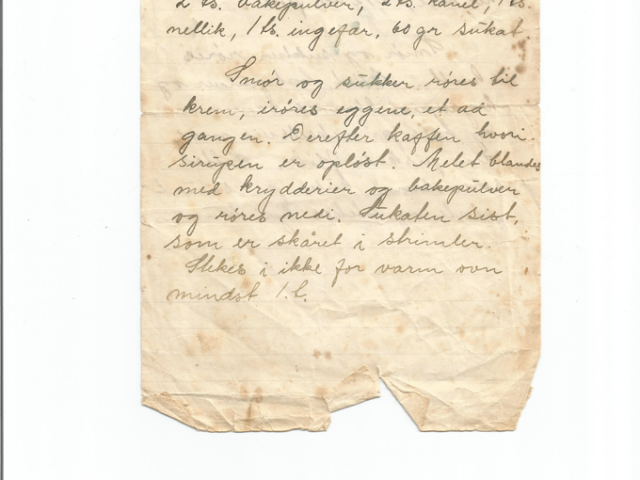 2 ts. bakepulver, 2 ts. kanel, 1 ts.
nellik, 1 ts. ingefær, 60 gr sukat.
Smør og sukker røres til
krem, irøres eggene, et ad
gangen. Derefter kaffen hvori
sirupen er opløst. Melet blandes
med krydderier og bakepulver
og røres nedi. Sukaten sist,
som er skåret i strimler.
Stekes i ikke for varm ovn
mindst 1 t.